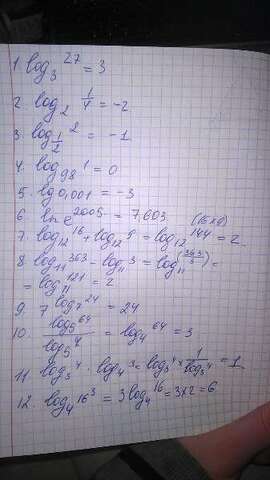 1. log₃ 27 = 3
2. log₂ 1/4 = -2
3. log_{1/2} 2 = -1
4. log₉₈ 1 = 0
5. lg 0,001 = -3
6. ln e^{2005} = 7,603
7. log₁₂ 16 + log₁₂ 9 = log₁₂ 144 = 2 (16×9)
8. log₁₁ 363 - log₁₁ 3 = log₁₁ (363/3) =
= log₁₁ 121 = 2
9. 7^{log₇ 24} = 24
10. log₅ 64 / log₅ 4 = log₄ 64 = 3
11. log₃ 4 · log₄ 3 = log₃ 4 × 1/log₃ 4 = 1
12. log₄ 16³ = 3 log₄ 16 = 3×2 = 6